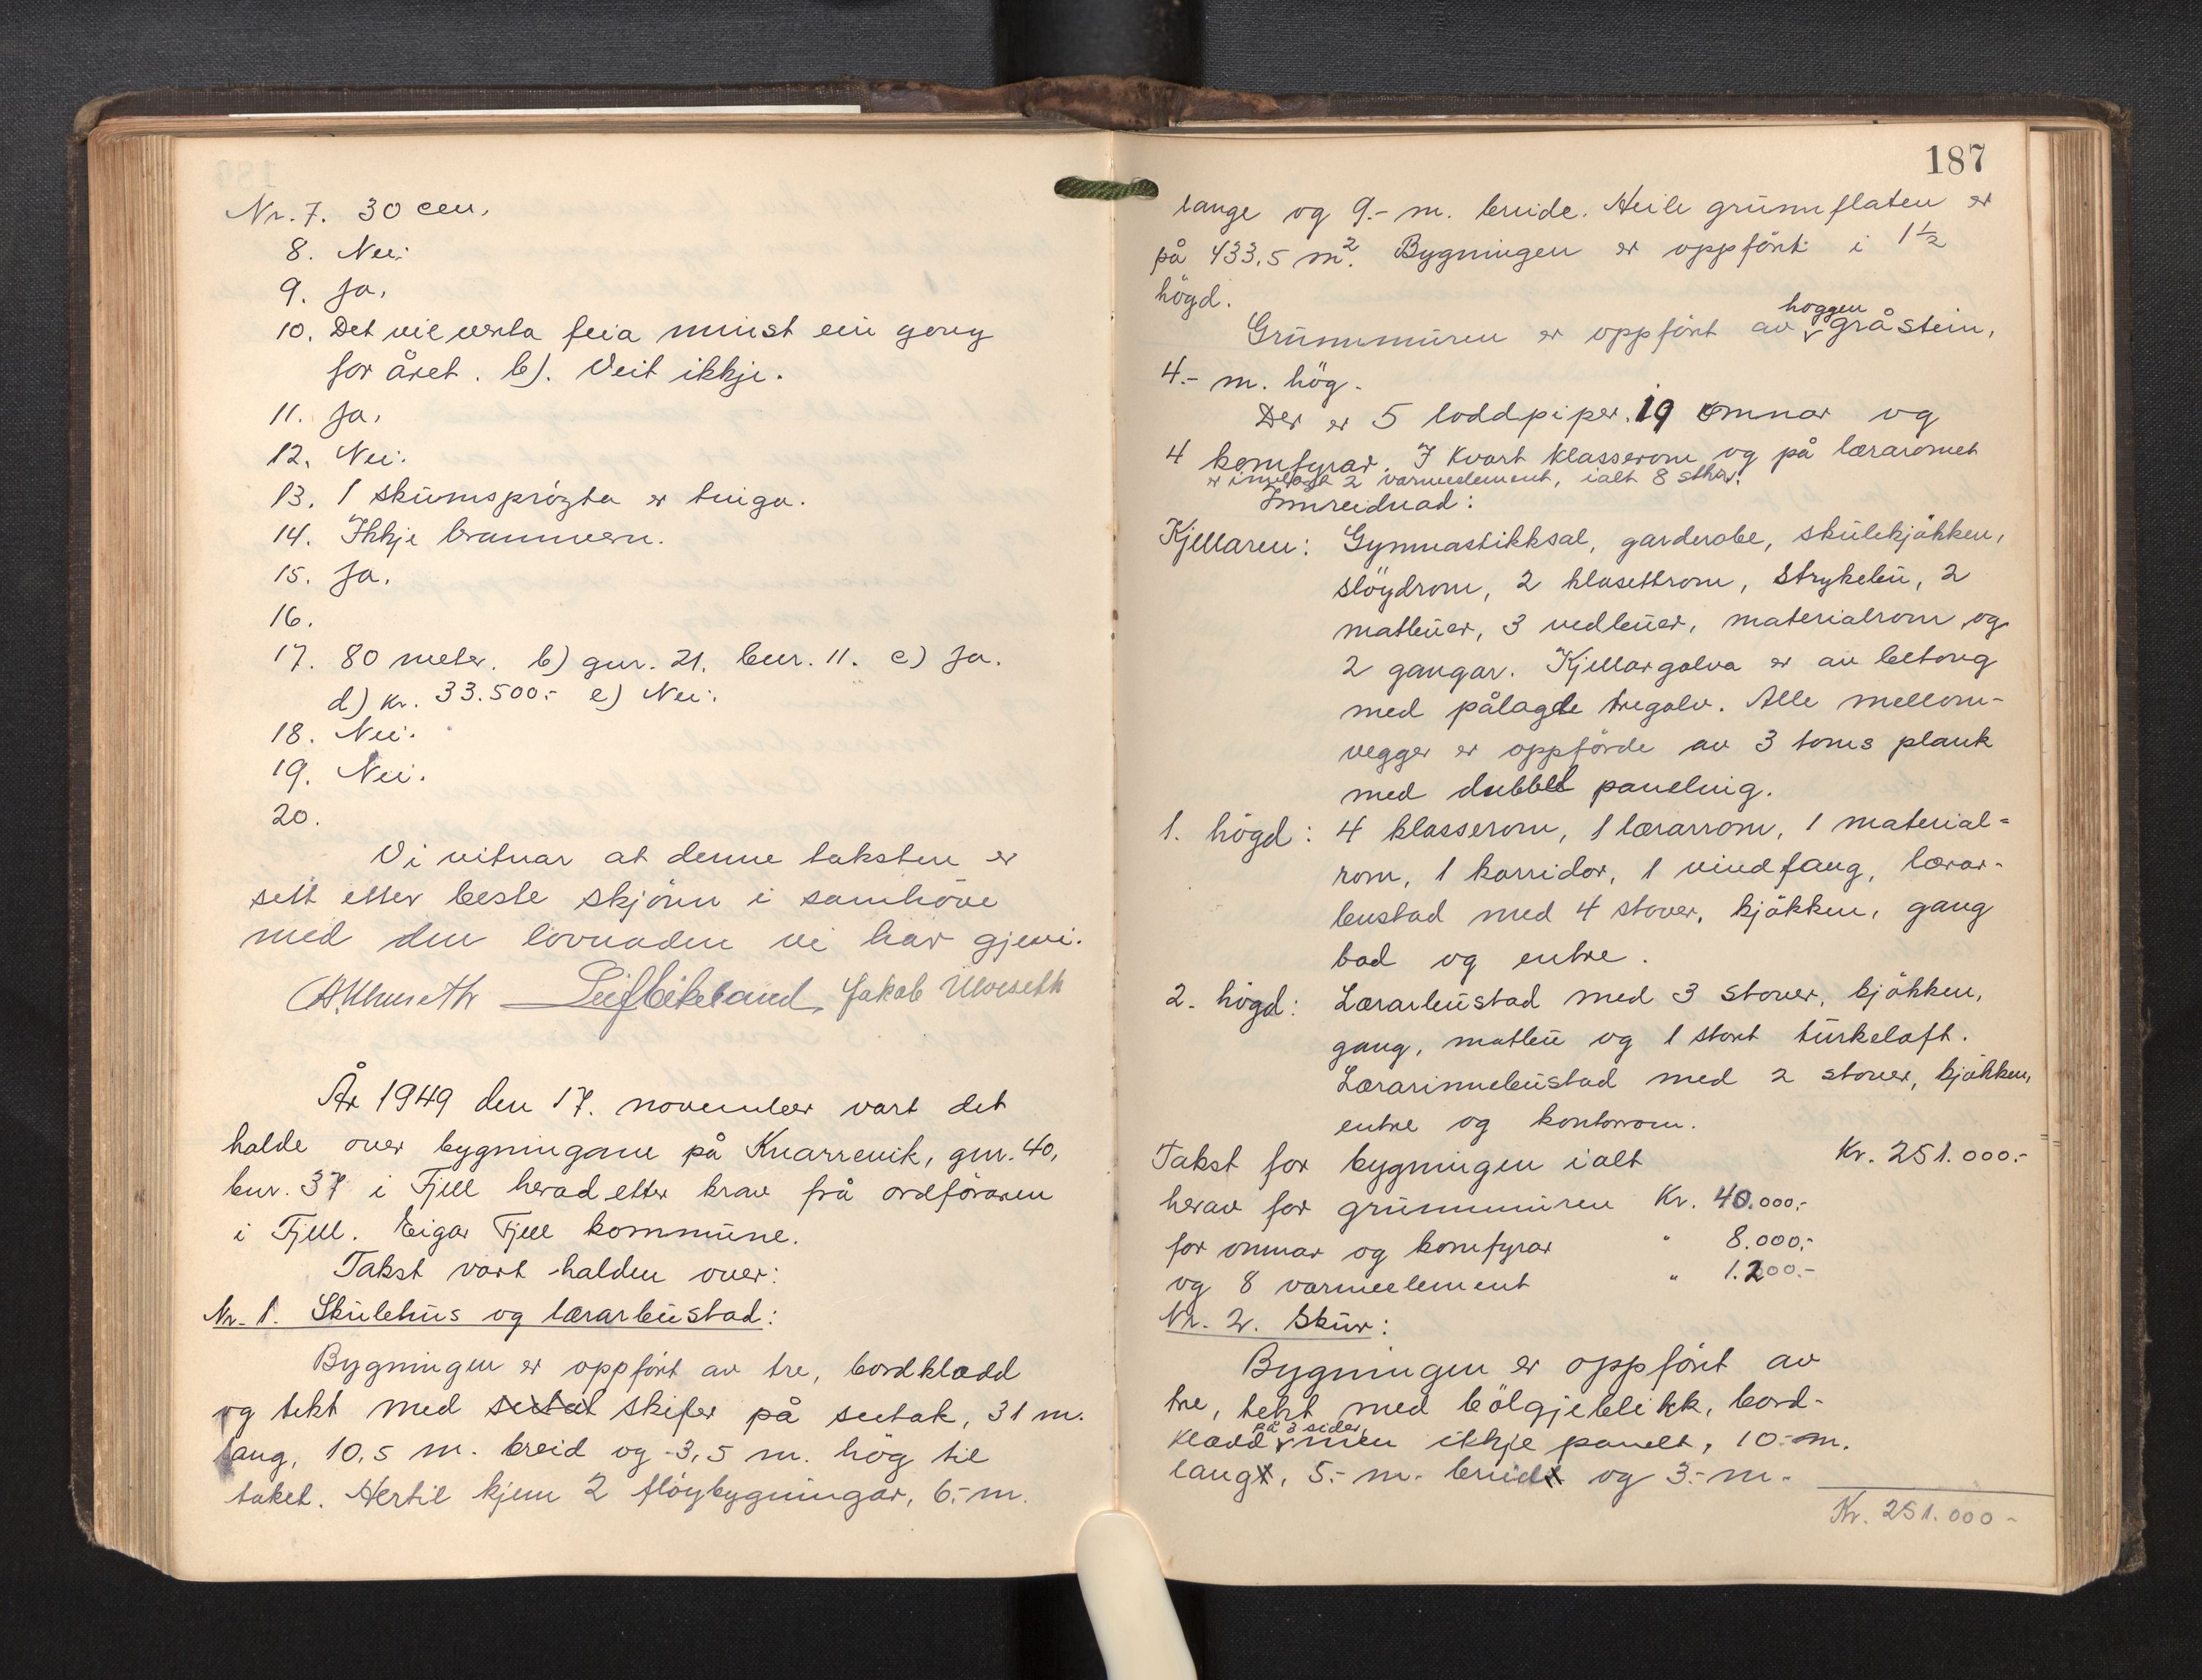 Nr. 7. 30 cm.
8. Nei.
9. Ja.
10. Det vil verta feia minst ein gong
for året. b). Veit ikkje.
11. Ja.
12. Nei.
13. 1 skumsprøyta er tinga.
14. Ikkje brannvern.
15. Ja.
16.
17. 80 meter. b) gnr. 21. bnr. 11. c) Ja.
d) kr. 33.500.- e) Nei.
18. Nei.
19. Nei.
20.
Vi vitnar at denne taksten er
sett etter beste skjönn i samhöve
med den lovnaden vi har gjevi.
Leif Eikeland Jakob Ulveseth
År 1949 den 17. november vart det
halde over bygningane på Knarrevik, gnr. 40,
bnr. 37 i Fjell herad etter krav frå ordföraren
i Fjell. Eigar Fjell kommune.
Takst vart halden over:
Nr. 1. Skulehus og lærarbustad:
Bygningen er oppfört av tre, bordkledd
og tekt med skifer på sutak, 31 m.
lang, 10,5 m. breid og 3,5 m. hög til
taket. Hertil kjem 2 flöybygningar, 6.- m.
187
lange og 9.- m. breide. Heile grunnflaten er
på 433,5 m². Bygningen er oppfört i 1½
högd.
hoggen
Grunnmuren er oppfört av gråstein,
4.- m. hög.
Der er 5 loddpiper. 19 omnar og
4 komfyrar. I kvart klasserom og på læraromet
er innlagt 2 varmeelement, ialt 8 stkr.
Innreidnad:
Kjellaren: Gymnastikksal, garderobe, skulekjökken,
slöydrom, 2 klosettrom, strykebu, 2
matbuer, 3 vedbuer, materialrom og
2 gangar. Kjellargolva er av betong
med pålagde tregolv. Alle mellom-
vegger er oppförde av 3 toms plank
med dubbel paneling.
1. högd: 4 klasserom, 1 lærarrom, 1 material-
rom, 1 korridor, 1 vindfang, lærar-
bustad med 4 stover, kjökken, gang
bad og entre.
2. högd: Lærarbustad med 3 stover, kjökken,
gang, matbu og 1 stort turkeloft.
Lærarinnebustad med 2 stover, kjökken,
entre og kontorrom.
Takst for bygningen ialt Kr. 251.000.-
herav for grunnmuren Kr. 40.000.-
for omnar og komfyrar " 8.000.-
og 8 varmeelement " 1.200.-
Nr. 2. Skur:
Bygningen er oppfört av
tre, tekt med bölgjeblikk, bord-
på 3 sider,
kledd men ikkje panelt, 10.- m.
lang, 5.- m. breid og 3.- m.
Kr. 251.000 -